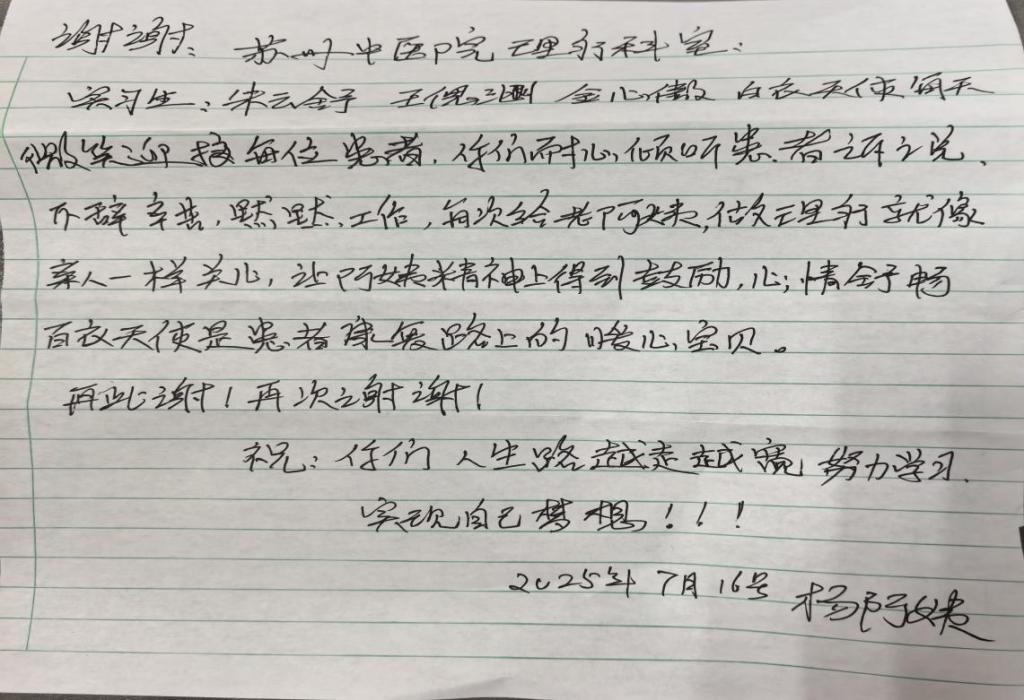 谢谢：苏州中医院理疗科室：
实习生：朱云舒 王偲 金心傲 白衣天使每天
微笑迎接每位患者，你们耐心倾听患者诉说、
不辞辛苦，默默工作，每次给老阿姨做理疗就像
亲人一样关心，让阿姨精神上得到鼓励，心情舒畅
百衣天使是患者康复路上的暖心宝贝。
再此谢！再次谢谢！
祝：你们人生路越走越宽 努力学习
实现自己梦想！！！
2025年7月16号 杨阿姨